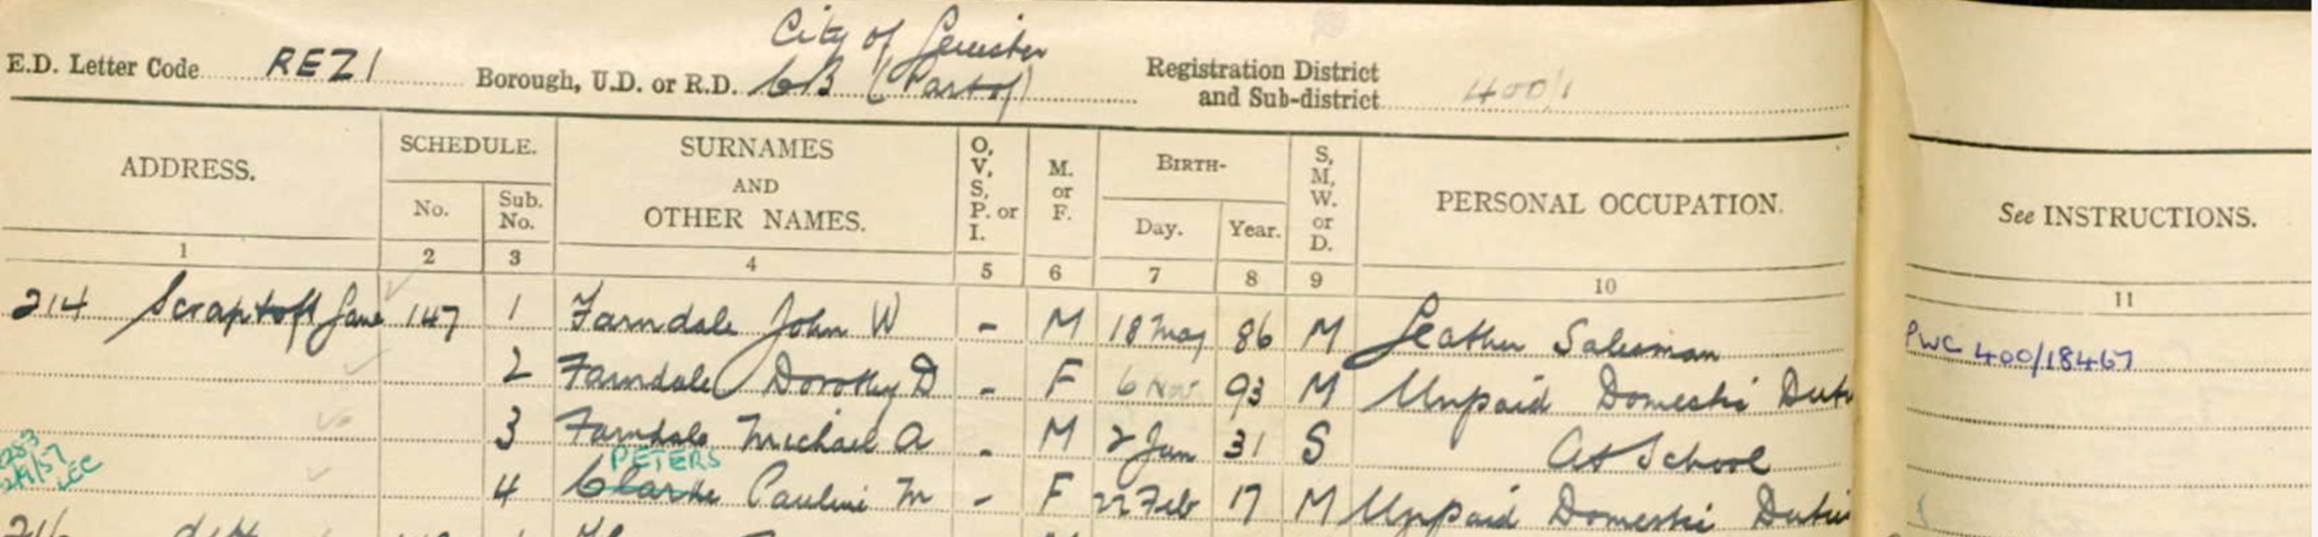 City of Leicester
E.D. Letter Code REZ1 Borough, U.D. or R.D. CB (Part of) Registration District and Sub-district 400/1
ADDRESS. SCHEDULE. No. Sub. No. SURNAMES AND OTHER NAMES. O, V, S, P. or I. M. or F. BIRTH- Day. Year. S, M, W. or D. PERSONAL OCCUPATION. See INSTRUCTIONS.
1 2 3 4 5 6 7 8 9 10 11
214 Scraptoft Lane 147 1 Farndale John W - M 18 May 86 M Leather Salesman PWC 400/18467
2 Farndale Dorothy D - F 6 Nov 93 M Unpaid Domestic Duti
3 Farndale Michael A - M 2 Jun 31 S At School
PETERS
4 Clarke Pauline M - F 22 Feb 17 M Unpaid Domestic Duties